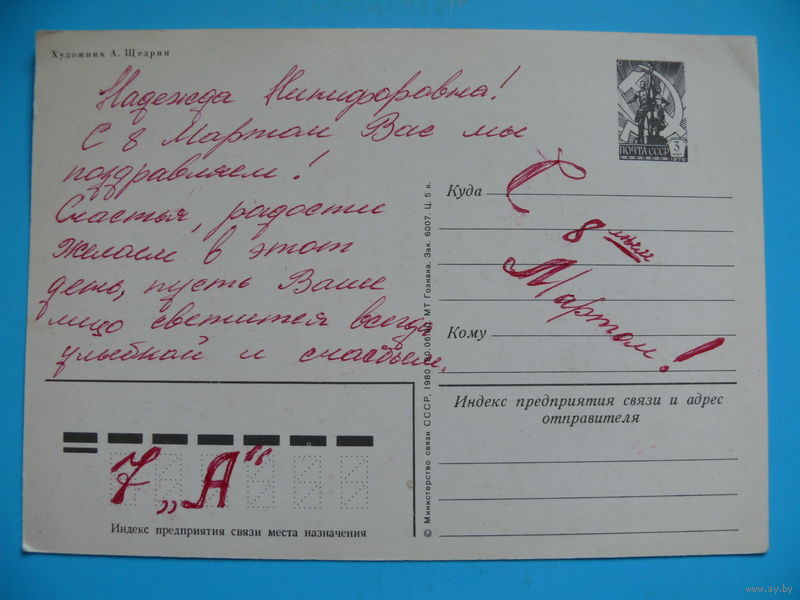 Художник А. Щедрин
Надежда Никифоровна!
С 8 Мартом Вас мы
поздравляем!
Счастья, радости
желаем в этот
день, пусть Ваше
лицо светится всегда
улыбкой и счастьем.
ПОЧТА СССР 3
1976
Куда
С
8
Мартом!
Кому
Индекс предприятия связи и адрес
отправителя
7 „А“
Индекс предприятия связи места назначения
© Министерство связи СССР, 1980
МТ Гознака. Зак. 6007. Ц. 5 к.
www.ay.by